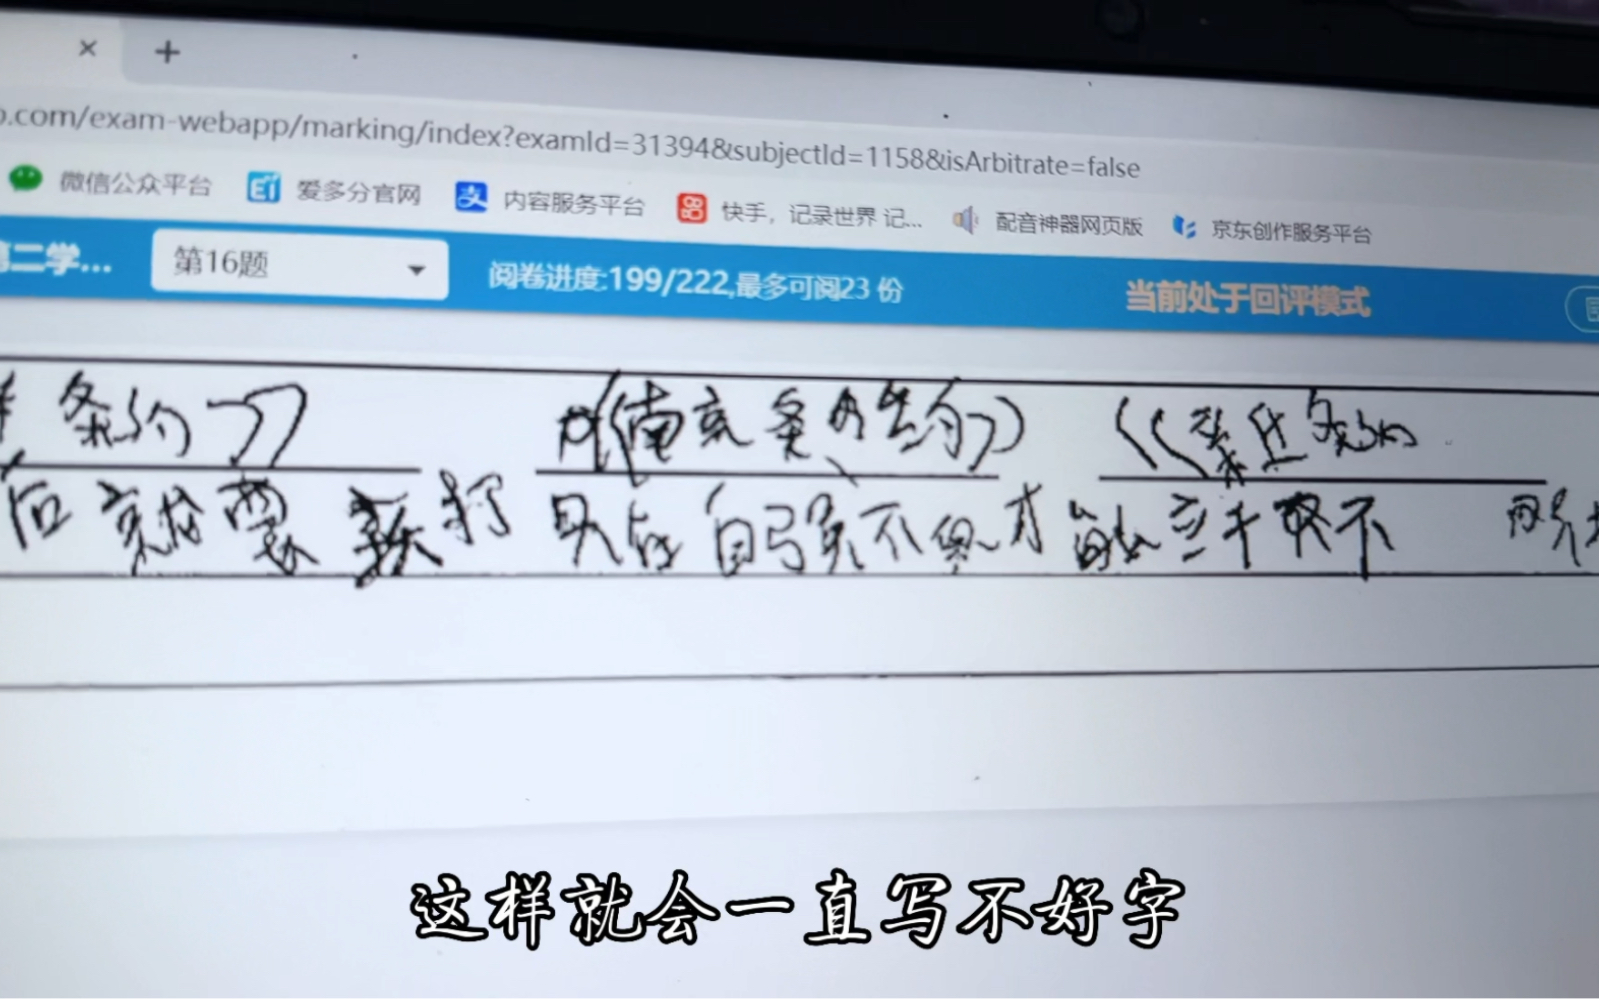 × +
o.com/exam-webapp/marking/index?examId=31394&subjectId=1158&isArbitrate=false
微信公众平台 爱多分官网 内容服务平台 快手，记录世界 记... 配音神器网页版 京东创作服务平台
第二学... 第16题 阅卷进度:199/222,最多可阅23 份 当前处于回评模式
条约》 《南京条约》 《《条约
后就要 打 只有自强不息才能立于不
这样就会一直写不好字